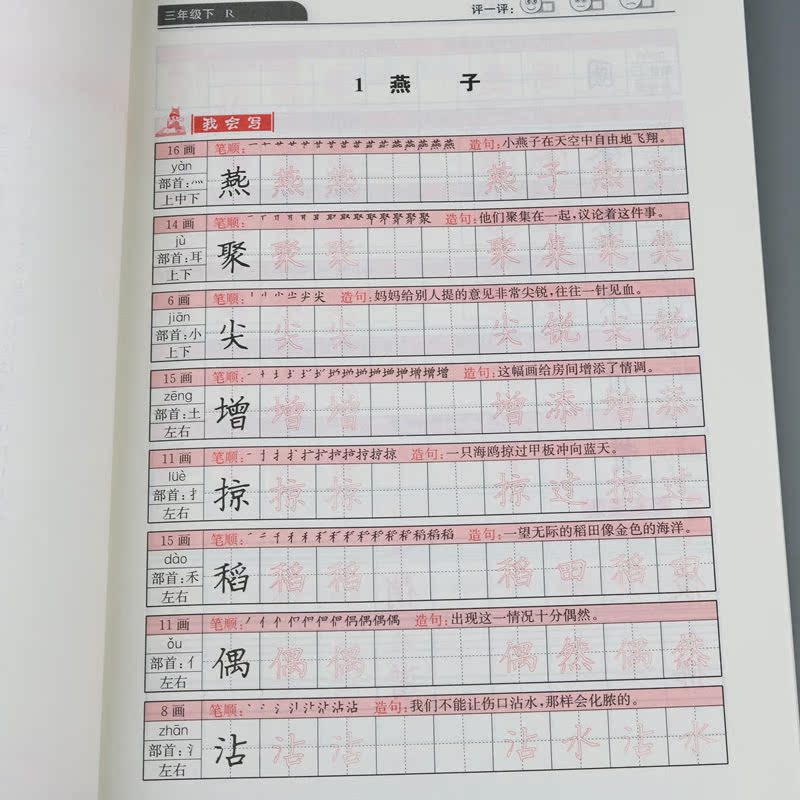 三年级下 R
评一评：
1 燕 子
我会写
16 画 笔顺： 造句：小燕子在天空中自由地飞翔。
yàn
部首：灬 燕 燕 燕 燕 子 燕 子
上中下
14 画 笔顺： 造句：他们聚集在一起，议论着这件事。
jù
部首：耳 聚 聚 聚 聚 集 聚 集
上下
6 画 笔顺： 造句：妈妈给别人提的意见非常尖锐，往往一针见血。
jiān
部首：小 尖 尖 尖 尖 锐 尖 锐
上下
15 画 笔顺： 造句：这幅画给房间增添了情调。
zēng
部首：土 增 增 增 增 添 增 添
左右
11 画 笔顺： 造句：一只海鸥掠过甲板冲向蓝天。
lüè
部首：扌 掠 掠 掠 掠 过 掠 过
左右
15 画 笔顺： 造句：一望无际的稻田像金色的海洋。
dào
部首：禾 稻 稻 稻 稻 田 稻 田
左右
11 画 笔顺： 造句：出现这一情况十分偶然。
ǒu
部首：亻 偶 偶 偶 偶 然 偶 然
左右
8 画 笔顺： 造句：我们不能让伤口沾水，那样会化脓的。
zhān
部首：氵 沾 沾 沾 沾 水 沾 水
左右